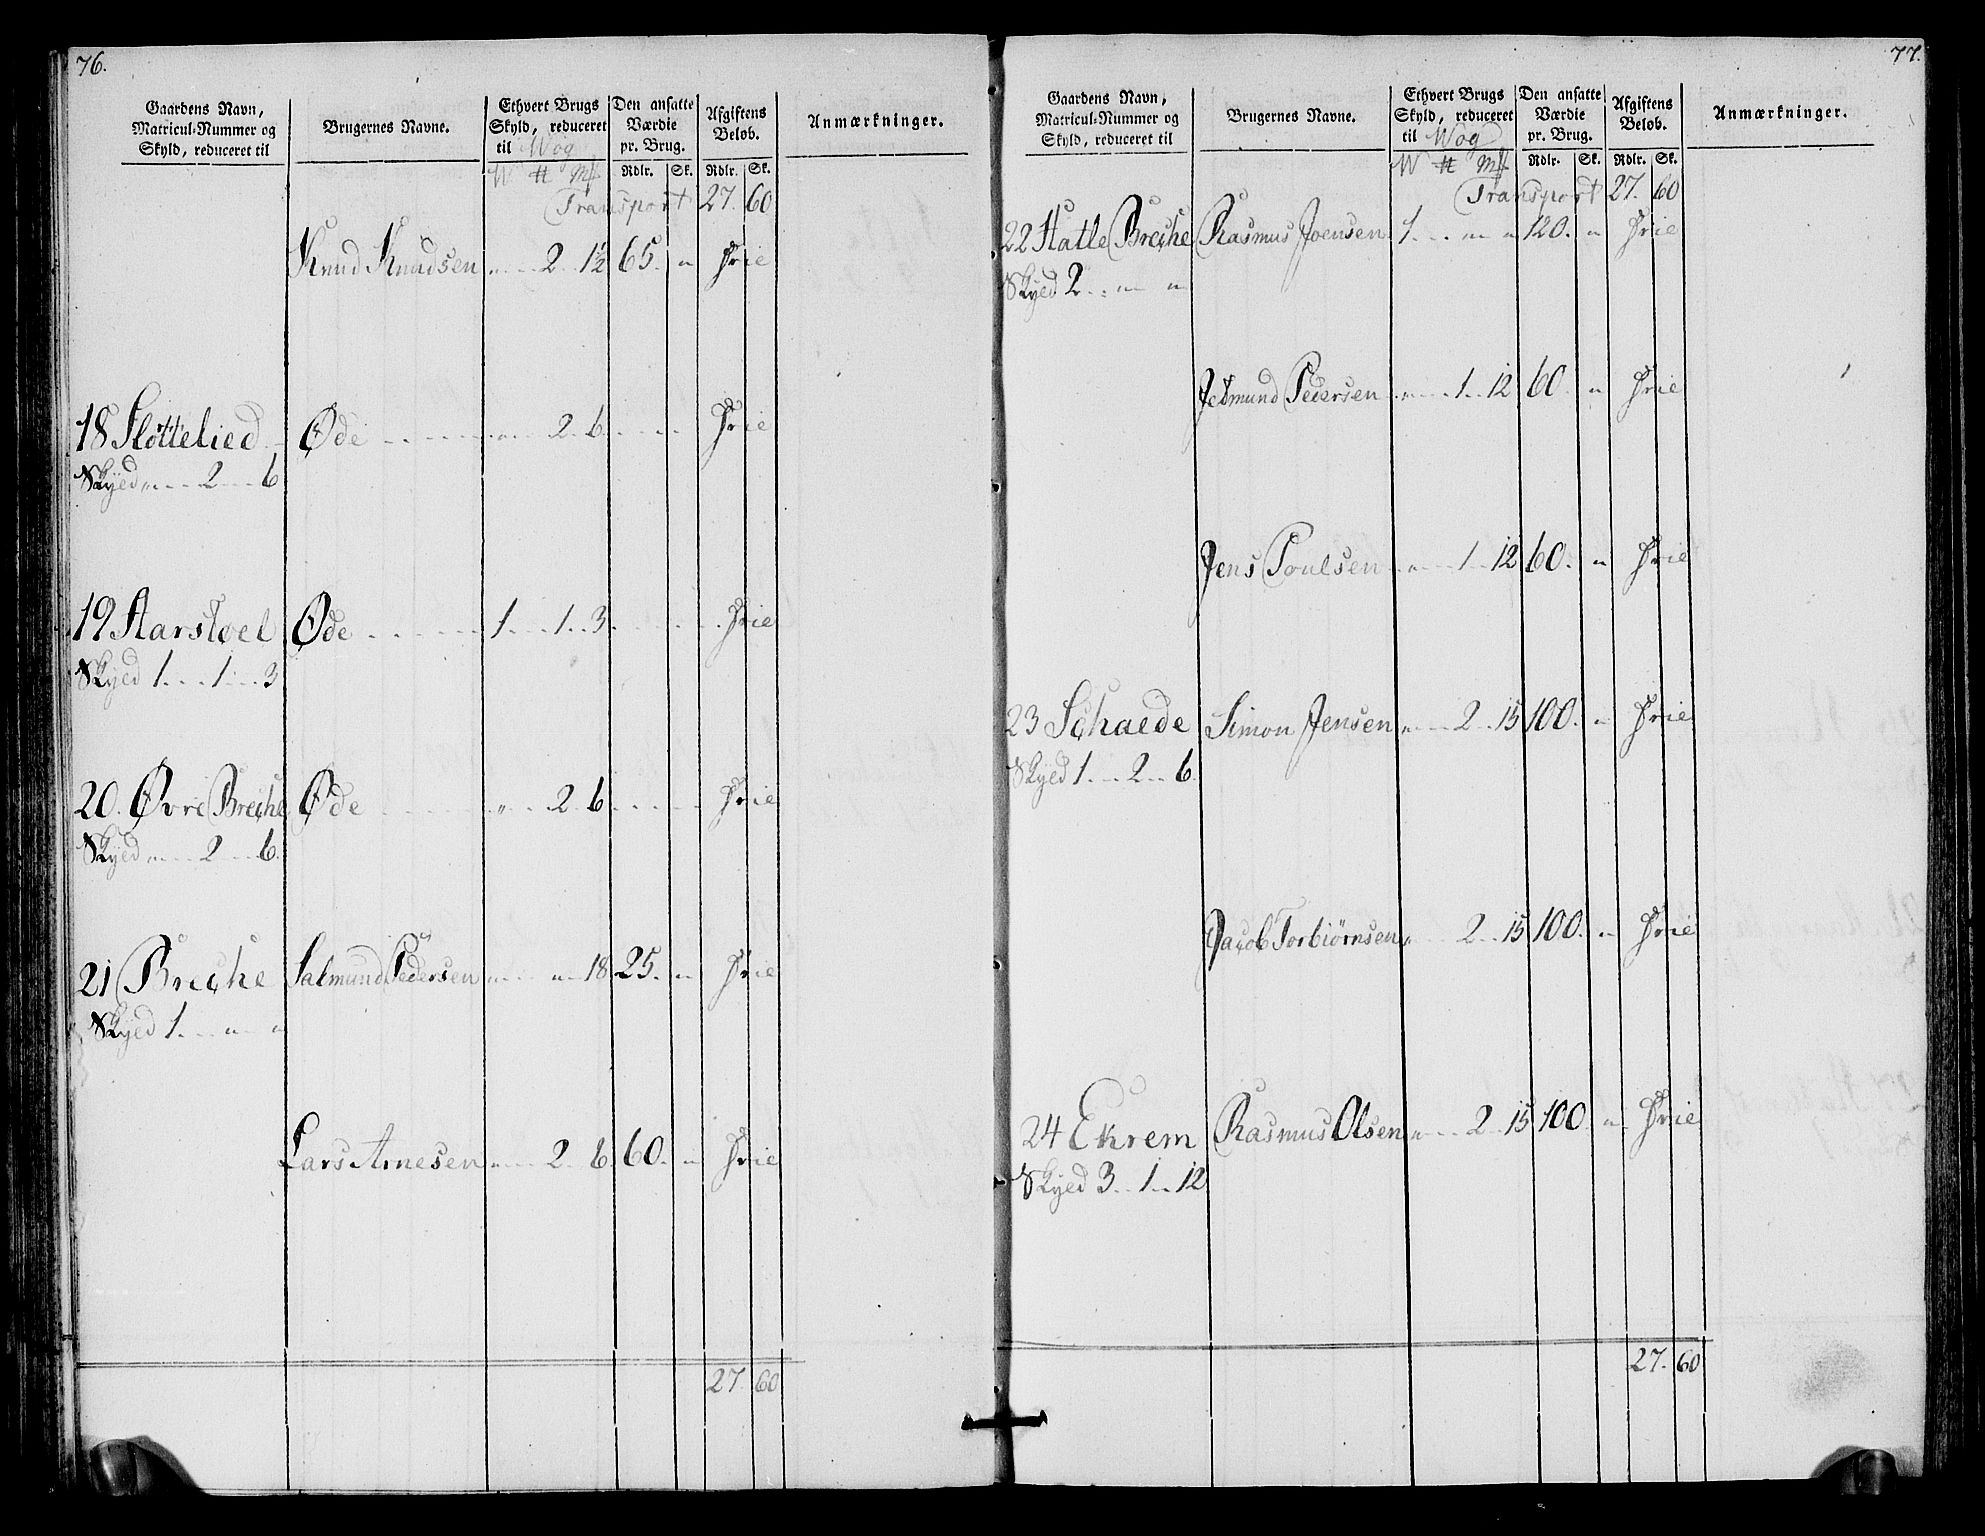 76.
Gaardens Navn, Matricul-Nummer og Skyld, reduceret til
Brugernes Navne.
Ethvert Brugs Skyld, reduceret til Wog
Den ansatte Værdie pr. Brug.
Afgiftens Beløb.
Anmærkninger.
W ℔ Mk
Rdlr. Sk. Rdlr. Sk.
Transport 27. 60
Knud Knudsen „ 2 1½ 65. „ Frie
18 Fløttelied Øde „ 2 6 Frie
Skyed „ 2 6
19 Aarstoel Øde 1 1 3 Frie
Skyed 1 1 3
20. Øvre Breche Øde „ 2 6 Frie
Skyed „ 2 6.
21 Breche Salmund Pedersen „ „ 18 25. „ Frie
Skyed 1. „ „
Lars Arnesen „ 2 6 60. „ Frie
27 60
77.
Gaardens Navn, Matricul-Nummer og Skyld, reduceret til
Brugernes Navne.
Ethvert Brugs Skyld, reduceret til Wog
Den ansatte Værdie pr. Brug.
Afgiftens Beløb.
Anmærkninger.
W ℔ Mk
Rdlr. Sk. Rdlr. Sk.
Transport 27. 60
22 Hatle Breche Rasmus Joensen 1 „ „ 120. „ Frie
Skyed 2 „ „
Jetmund Pedersen „ 1 12 60. „ Frie
Jens Poulsen „ 1 12 60. „ Frie
23 Schaede Simon Jensen „ 2 15 100. „ Frie
Skyed 1 2 6
Jacob Torbiørnsen „ 2 15 100. „ Frie
24 Ekrem Rasmus Olsen „ 2 15 100 „ Frie
Skyed 3 1 12
27. 60